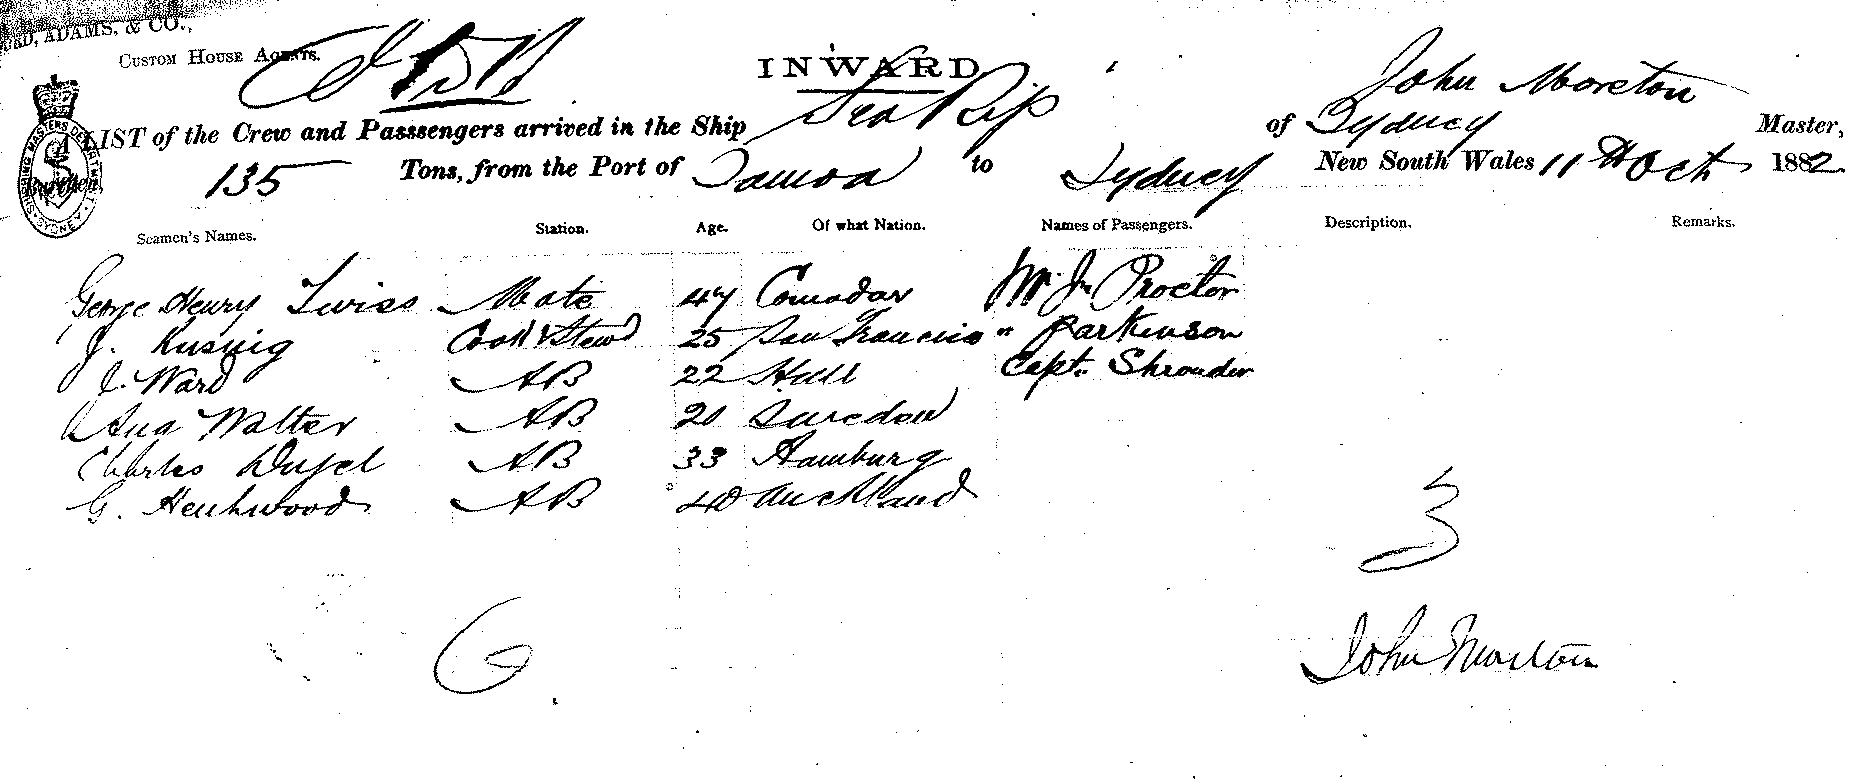 RD, ADAMS, & CO.,
CUSTOM HOUSE AGENTS.
INWARD
John Moreton
A LIST of the Crew and Passsengers arrived in the Ship Sea Rip of Sydney Master,
Burthen, 135 Tons, from the Port of Samoa to Sydney New South Wales 11th Oct 1882
Seamen's Names. Station. Age. Of what Nation. Names of Passengers. Description. Remarks.
George Henry Twiss Mate 47 Mr Jn Proctor
J. Cook & Stewd 25 San Francisco " Parkinson
J. Ward AB 22 Hull Capt. Shrouder
Aug Walter AB 20 Sweden
Charles AB 33 Hamburg
G. Henhwood AB 40 Auckland
3
6
John Moreton
SHIPPING MASTERS DEPARTMENT
SYDNEY